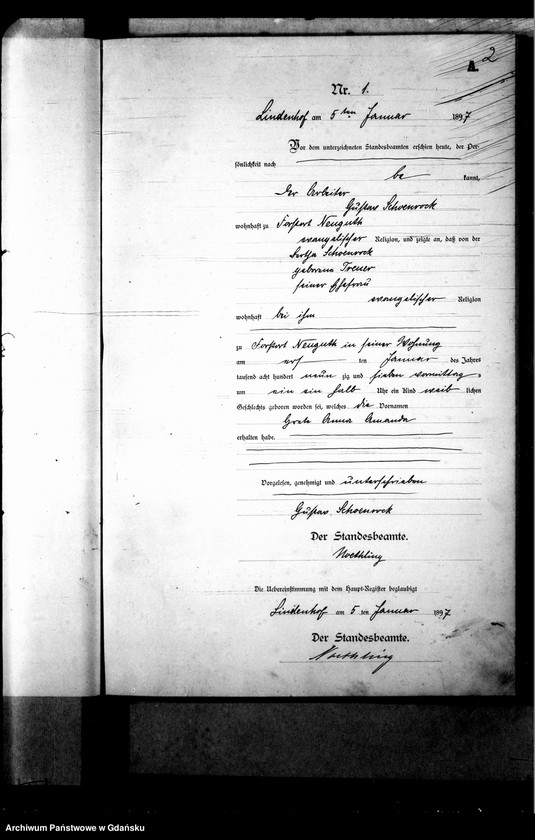 2
A.
Nr. 1.
Lindenhof am 5ten Januar 1897
Vor dem unterzeichneten Standesbeamten erschien heute, der Per-
sönlichkeit nach
be kannt,
der Arbeiter
Gustav Schoenrock
wohnhaft zu Forstort Neuguth
evangelischer Religion, und zeigte an, daß von der
Bertha Schoenrock
geborene Treuer
seiner Ehefrau
evangelischer Religion
wohnhaft bei ihm
zu Forstort Neuguth in seiner Wohnung
am ersten Januar des Jahres
tausend acht hundert neun zig und sieben vormittag s
um ein ein halb Uhr ein Kind weib lichen
Geschlechts geboren worden sei, welches die Vornamen
Grete Anna Amanda
erhalten habe.
Vorgelesen, genehmigt und unterschrieben
Gustav Schoenrock
Der Standesbeamte.
Noethling
Die Uebereinstimmung mit dem Haupt-Register beglaubigt
Lindenhof am 5 ten Januar 1897
Der Standesbeamte.
Noethling
Archiwum Państwowe w Gdańsku